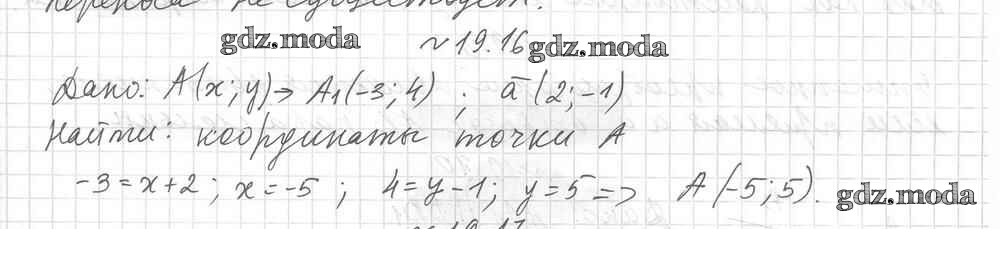 переноса не существует.
gdz.moda № 19.16 gdz.moda
Дано: A(x; y) → A₁(-3; 4) ; ā (2; -1)
Найти: координаты точки A
-3 = x + 2 ; x = -5 ; 4 = y - 1 ; y = 5 => A (-5; 5). gdz.moda